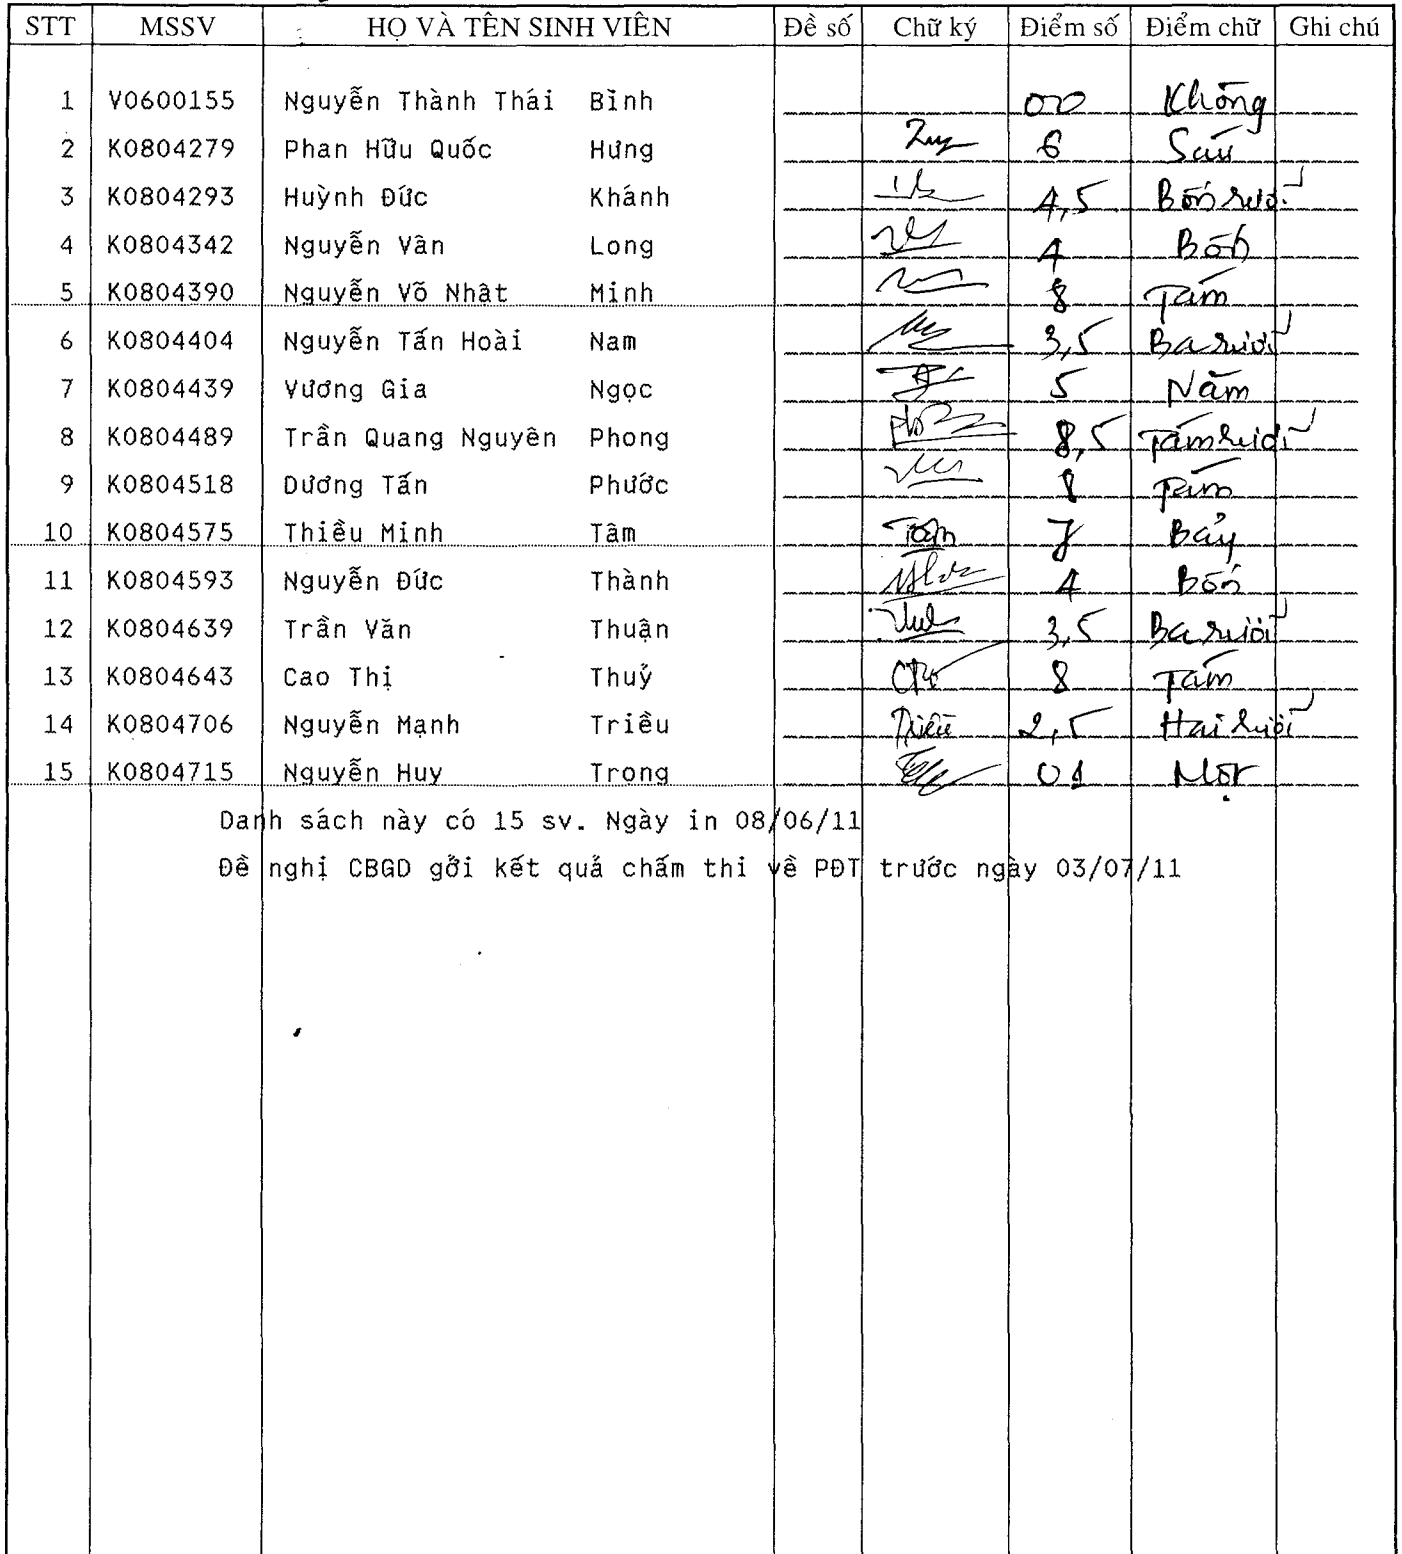 STT MSSV HỌ VÀ TÊN SINH VIÊN Đề số Chữ ký Điểm số Điểm chữ Ghi chú
1 V0600155 Nguyễn Thành Thái Bình 00 Không
2 K0804279 Phan Hữu Quốc Hưng 6 Sáu
3 K0804293 Huỳnh Đức Khánh 4,5 Bốn rưỡi
4 K0804342 Nguyễn Vân Long 4 Bốn
5 K0804390 Nguyễn Võ Nhât Minh 8 Tám
6 K0804404 Nguyễn Tấn Hoài Nam 3,5 Ba rưỡi
7 K0804439 Vương Gia Ngọc 5 Năm
8 K0804489 Trần Quang Nguyên Phong 8,5 Tám rưỡi
9 K0804518 Dương Tấn Phước 8 Tám
10 K0804575 Thiều Minh Tâm Tâm 7 Bảy
11 K0804593 Nguyễn Đức Thành 4 Bốn
12 K0804639 Trần Văn Thuận 3,5 Ba rưỡi
13 K0804643 Cao Thị Thuỷ 8 Tám
14 K0804706 Nguyễn Mạnh Triều Triều 2,5 Hai rưỡi
15 K0804715 Nguyễn Huy Trong 01 Một
Danh sách này có 15 sv. Ngày in 08/06/11
Đề nghị CBGD gởi kết quả chấm thi về PĐT trước ngày 03/07/11